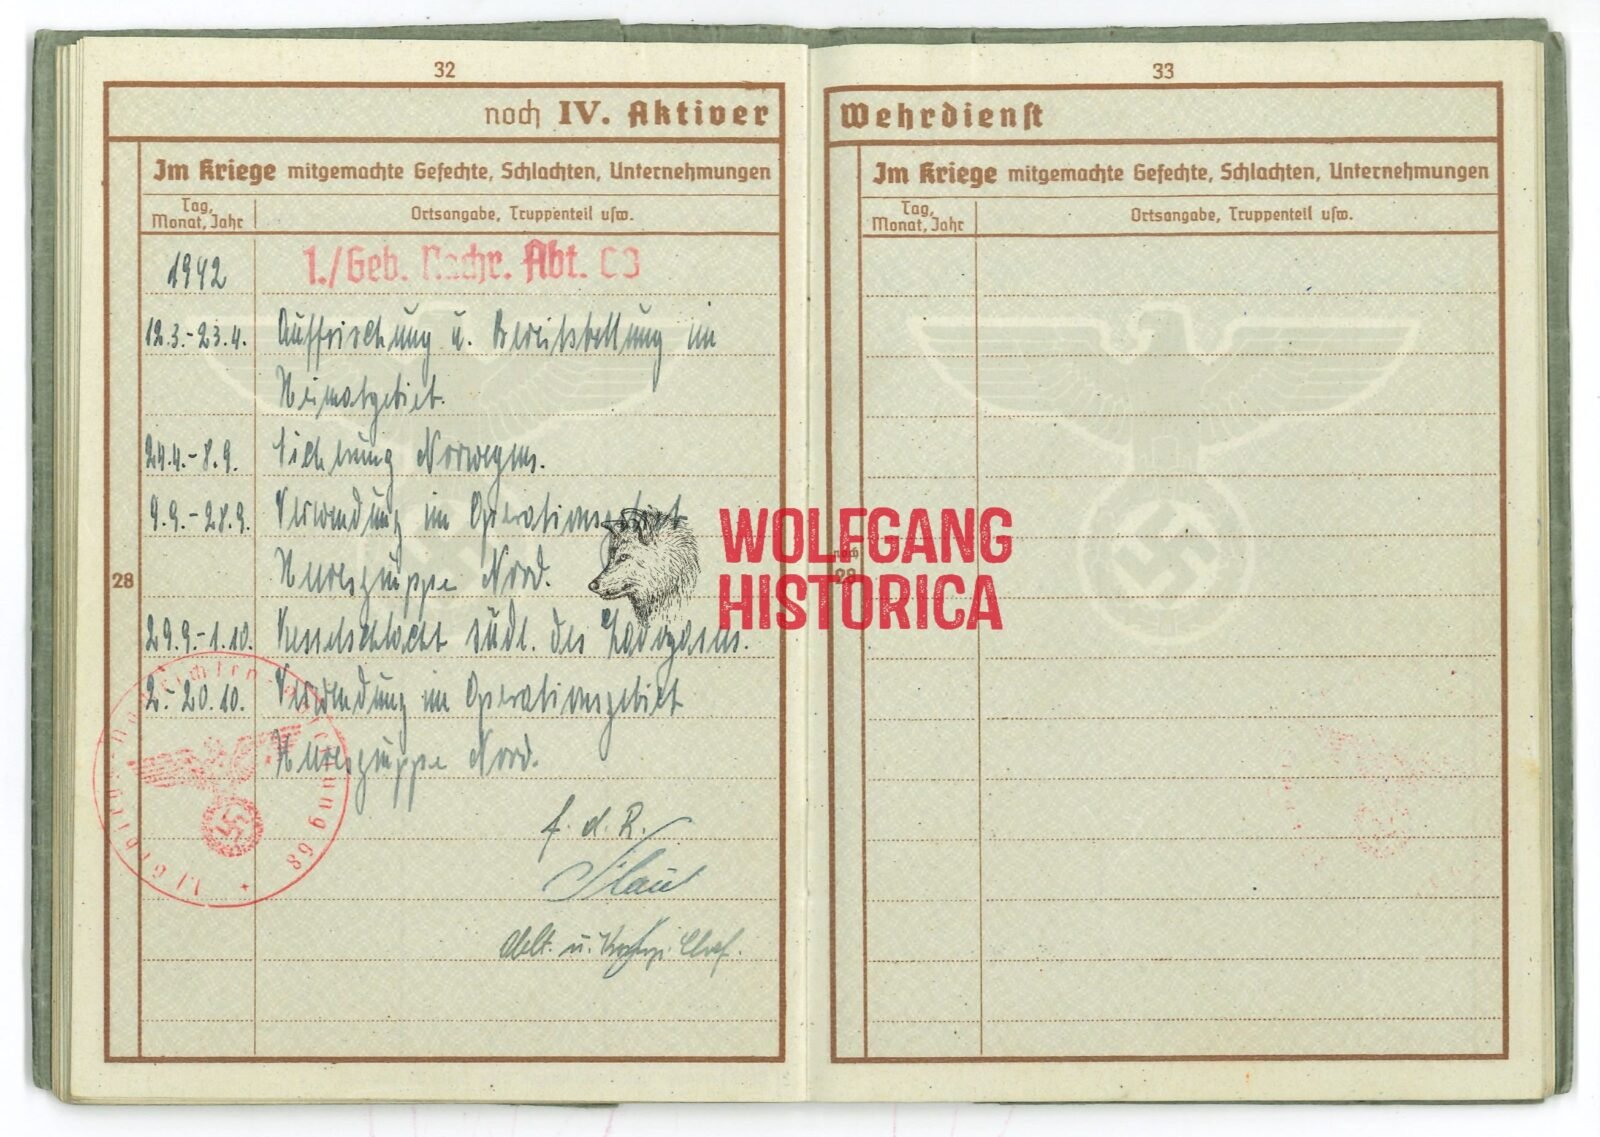 32
noch IV. Aktiver
Im Kriege mitgemachte Gefechte, Schlachten, Unternehmungen
Tag, Monat, Jahr
Ortsangabe, Truppenteil usw.
1942 1./Geb. Nachr. Abt. 68
12.3.-23.4. Auffrischung u. Bereitstellung im
Heimatgebiet.
24.4.-8.9. Sicherung Norwegens.
9.9.-28.9. Verwendung im Operationsgebiet
Heeresgruppe Nord.
28
29.9.-1.10. Kesselschlacht südl. des Ladogasees.
2.-20.10. Verwendung im Operationsgebiet
Heeresgruppe Nord.
f. d. R.
Oblt. u. Komp. Chef.
1./Gebirgs-Nachrichten-Abteilung 68
WOLFGANG
HISTORICA
33
Wehrdienst
Im Kriege mitgemachte Gefechte, Schlachten, Unternehmungen
Tag, Monat, Jahr
Ortsangabe, Truppenteil usw.
noch
28